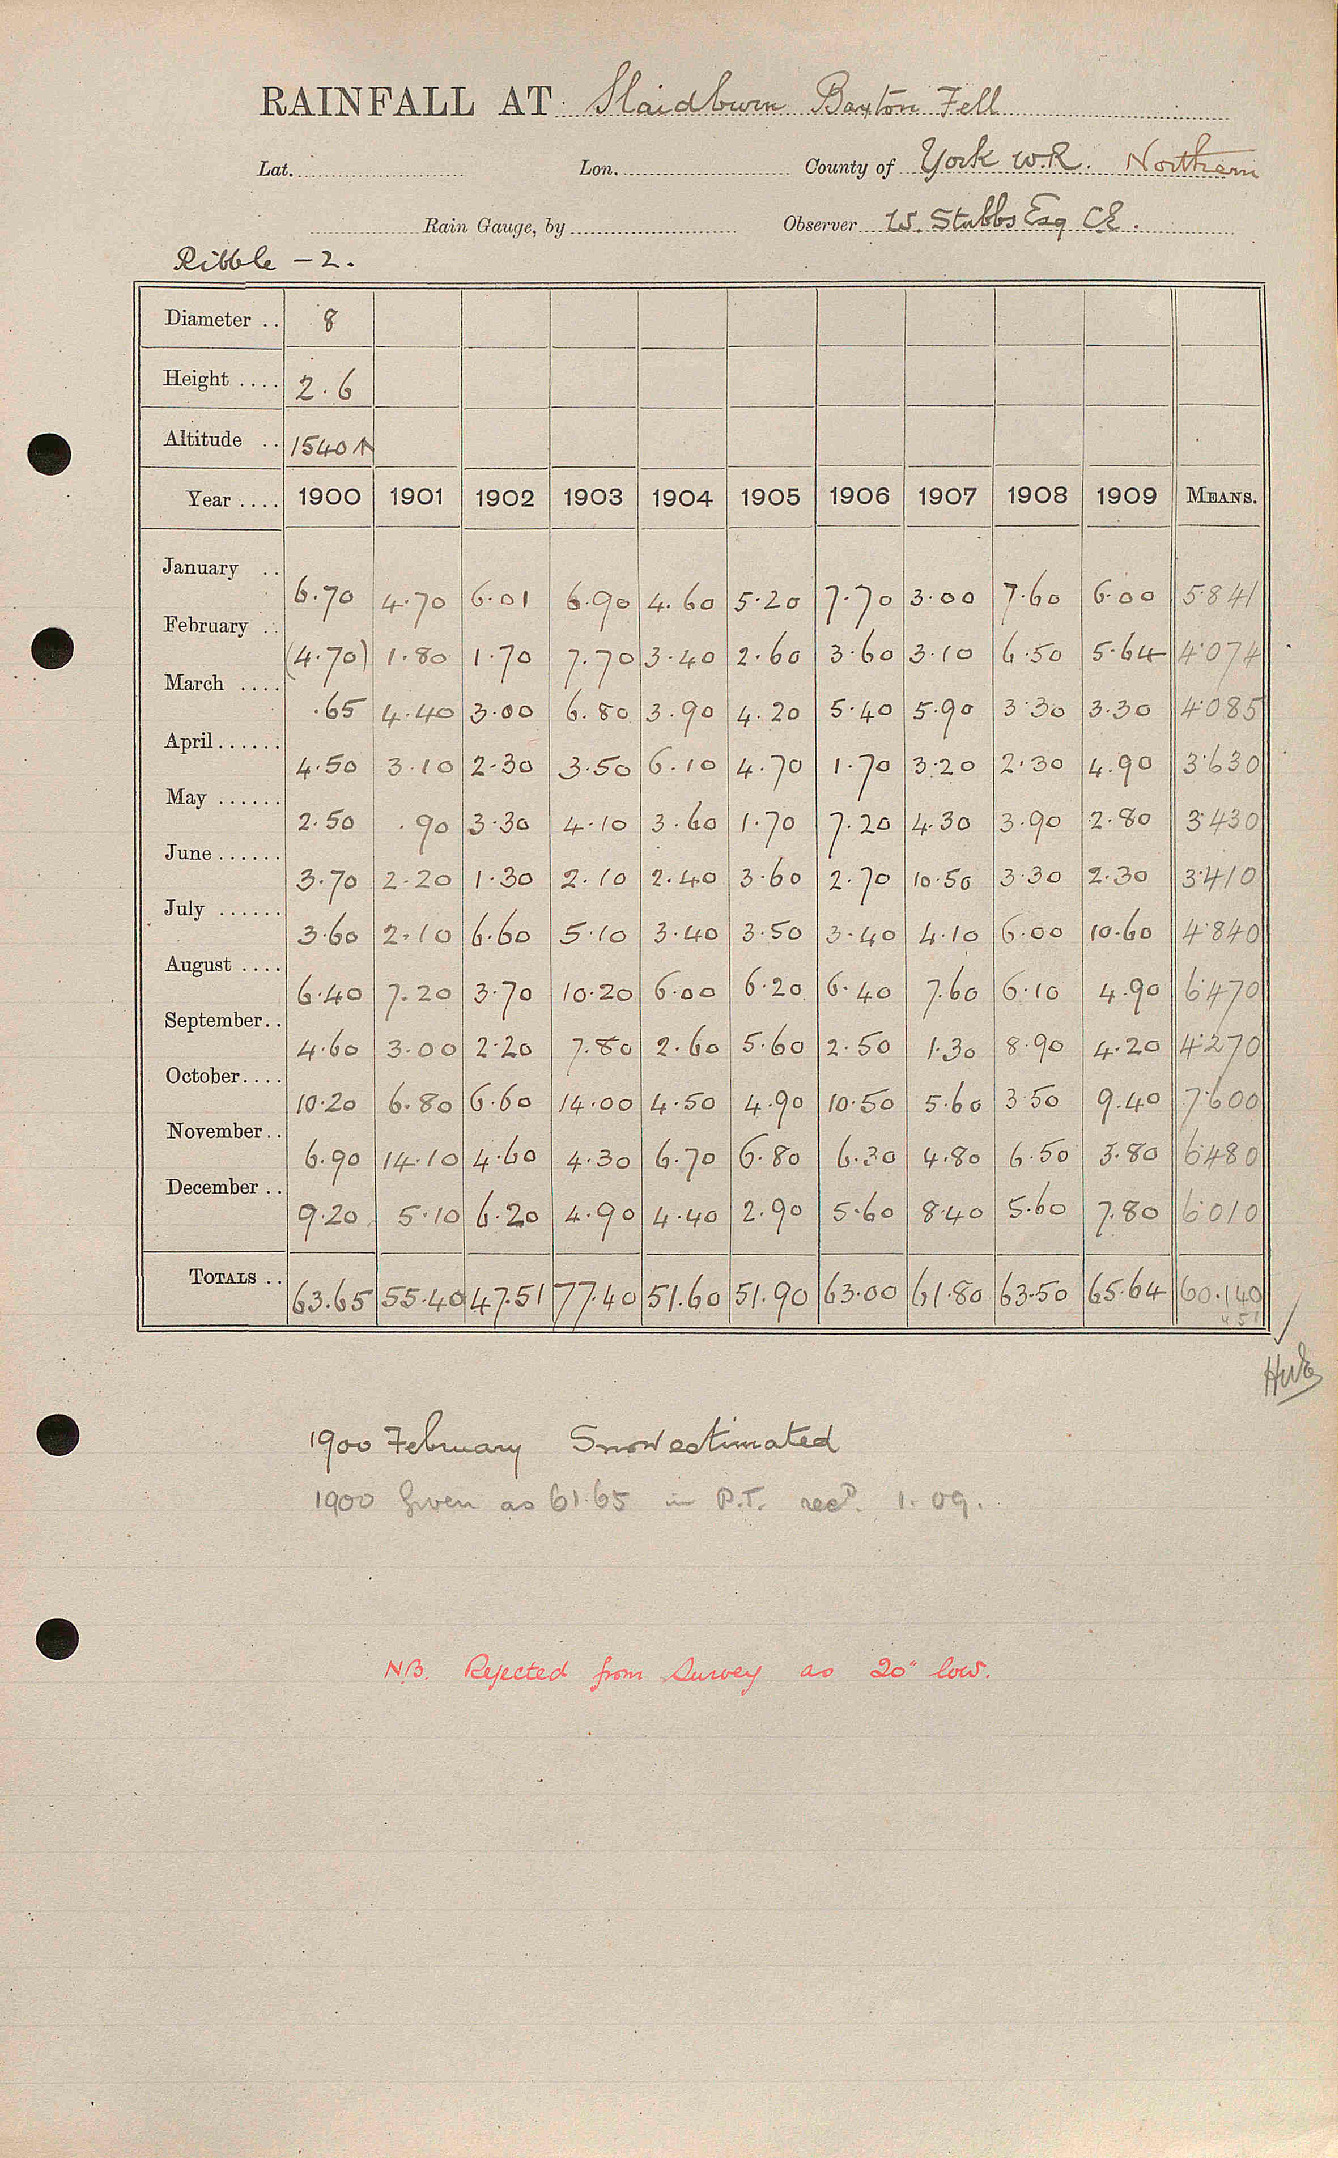 RAINFALL AT Slaidburn Baxton Fell
Lat. Lon. County of York W.R. Northern
Rain Gauge, by Observer W. Stubbs Esq C.E.
Ribble - 2.
Diameter .. 8
Height .... 2.6
Altitude .. 1540
Year .... 1900 1901 1902 1903 1904 1905 1906 1907 1908 1909 MEANS.
January .. 6.70 4.70 6.01 6.90 4.60 5.20 7.70 3.00 7.60 6.00 5.841
February .. (4.70) 1.80 1.70 7.70 3.40 2.60 3.60 3.10 6.50 5.64 4.074
March .... .65 4.40 3.00 6.80 3.90 4.20 5.40 5.90 3.30 3.30 4.085
April ...... 4.50 3.10 2.30 3.50 6.10 4.70 1.70 3.20 2.30 4.90 3.630
May ...... 2.50 .90 3.30 4.10 3.60 1.70 7.20 4.30 3.90 2.80 3.430
June ...... 3.70 2.20 1.30 2.10 2.40 3.60 2.70 10.50 3.30 2.30 3.410
July ...... 3.60 2.10 6.60 5.10 3.40 3.50 3.40 4.10 6.00 10.60 4.840
August .... 6.40 7.20 3.70 10.20 6.00 6.20 6.40 7.60 6.10 4.90 6.470
September.. 4.60 3.00 2.20 7.80 2.60 5.60 2.50 1.30 8.90 4.20 4.270
October.... 10.20 6.80 6.60 14.00 4.50 4.90 10.50 5.60 3.50 9.40 7.600
November.. 6.90 14.10 4.60 4.30 6.70 6.80 6.30 4.80 6.50 3.80 6.480
December .. 9.20 5.10 6.20 4.90 4.40 2.90 5.60 8.40 5.60 7.80 6.010
TOTALS .. 63.65 55.40 47.51 77.40 51.60 51.90 63.00 61.80 63.50 65.64 60.140
1900 February Snow estimated
1900 Given as 61.65 in P.T. recd. 1.09.
NB. Rejected from Survey as 20" low.